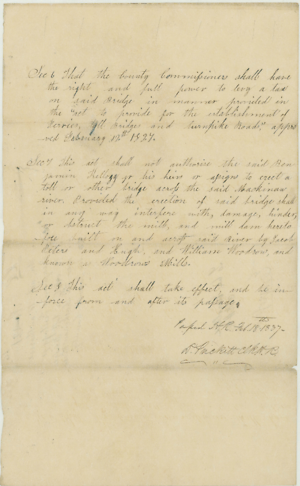 Sec 6 That the County Commissioners shall have
the right and full power to levy a tax
on said Bridge in manner provided in
the "act to provide for the establishment of
Ferries, Toll bridges and Turnpike Roads," appro
ved February 12th 1827.
Sec 7 This act shall not authorise the said Ben
jamin Kellogg jr his heirs or assigns to erect a
toll or other bridge across the said Mackinaw
river. Provided the erection of said bridge shall
in any way interfere with, damage, hinder,
or obstruct the mill, and mill dam hereto
fore built in and across said River by Jacob
and Hugh, and William Woodrow, and
known as Woodrows Mill.
Sec 8 This act shall take effect, and be in
force from and after its passage.
Passed H.R. Feb 1837
D. Prickett Clk H R